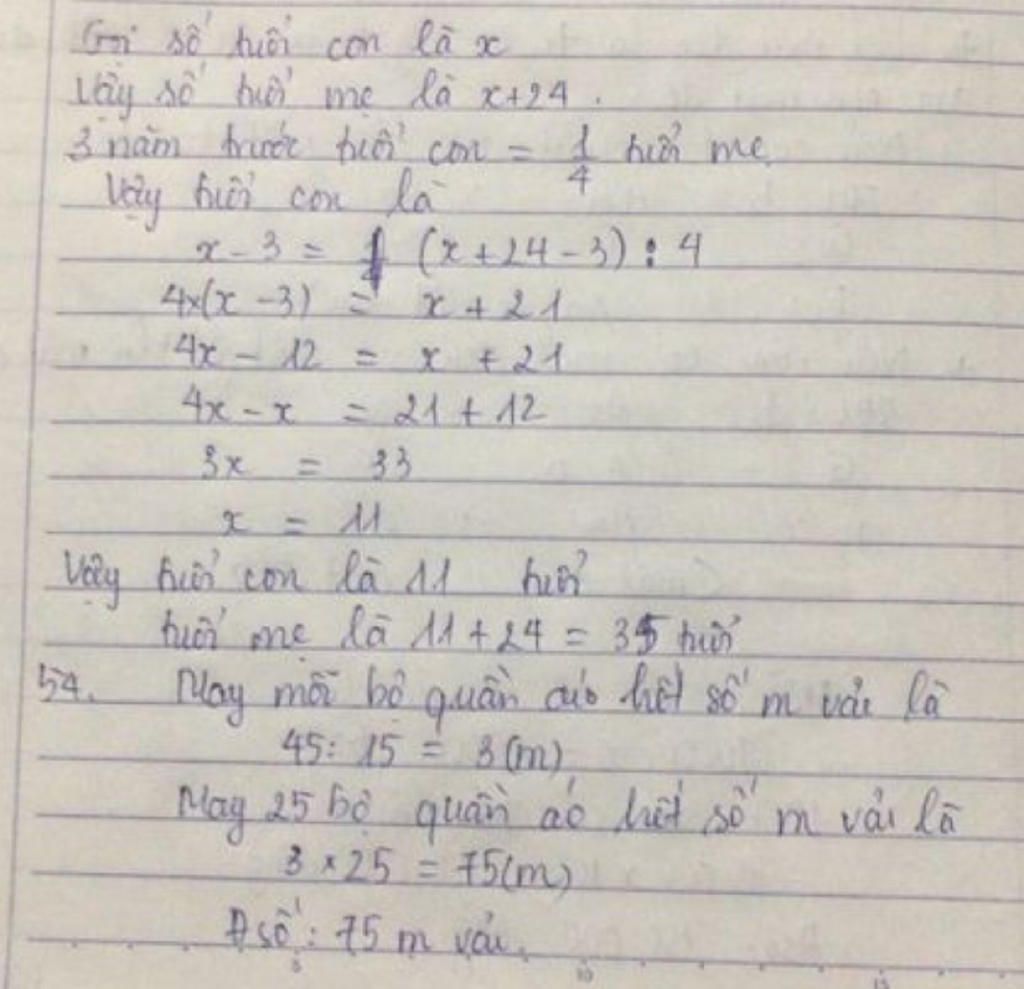 Gọi số tuổi con là x
Vậy số tuổi mẹ là x+24.
3 năm trước tuổi con = 1/4 tuổi mẹ
Vậy tuổi con là
x - 3 = (x + 24 - 3) : 4
4×(x - 3) = x + 21
4x - 12 = x + 21
4x - x = 21 + 12
3x = 33
x = 11
Vậy tuổi con là 11 tuổi
tuổi mẹ là 11 + 24 = 35 tuổi
54. May mỗi bộ quần áo hết số m vải là
45 : 15 = 3 (m)
May 25 bộ quần áo hết số m vải là
3 × 25 = 75 (m)
Đ số : 75 m vải.
5 10 15